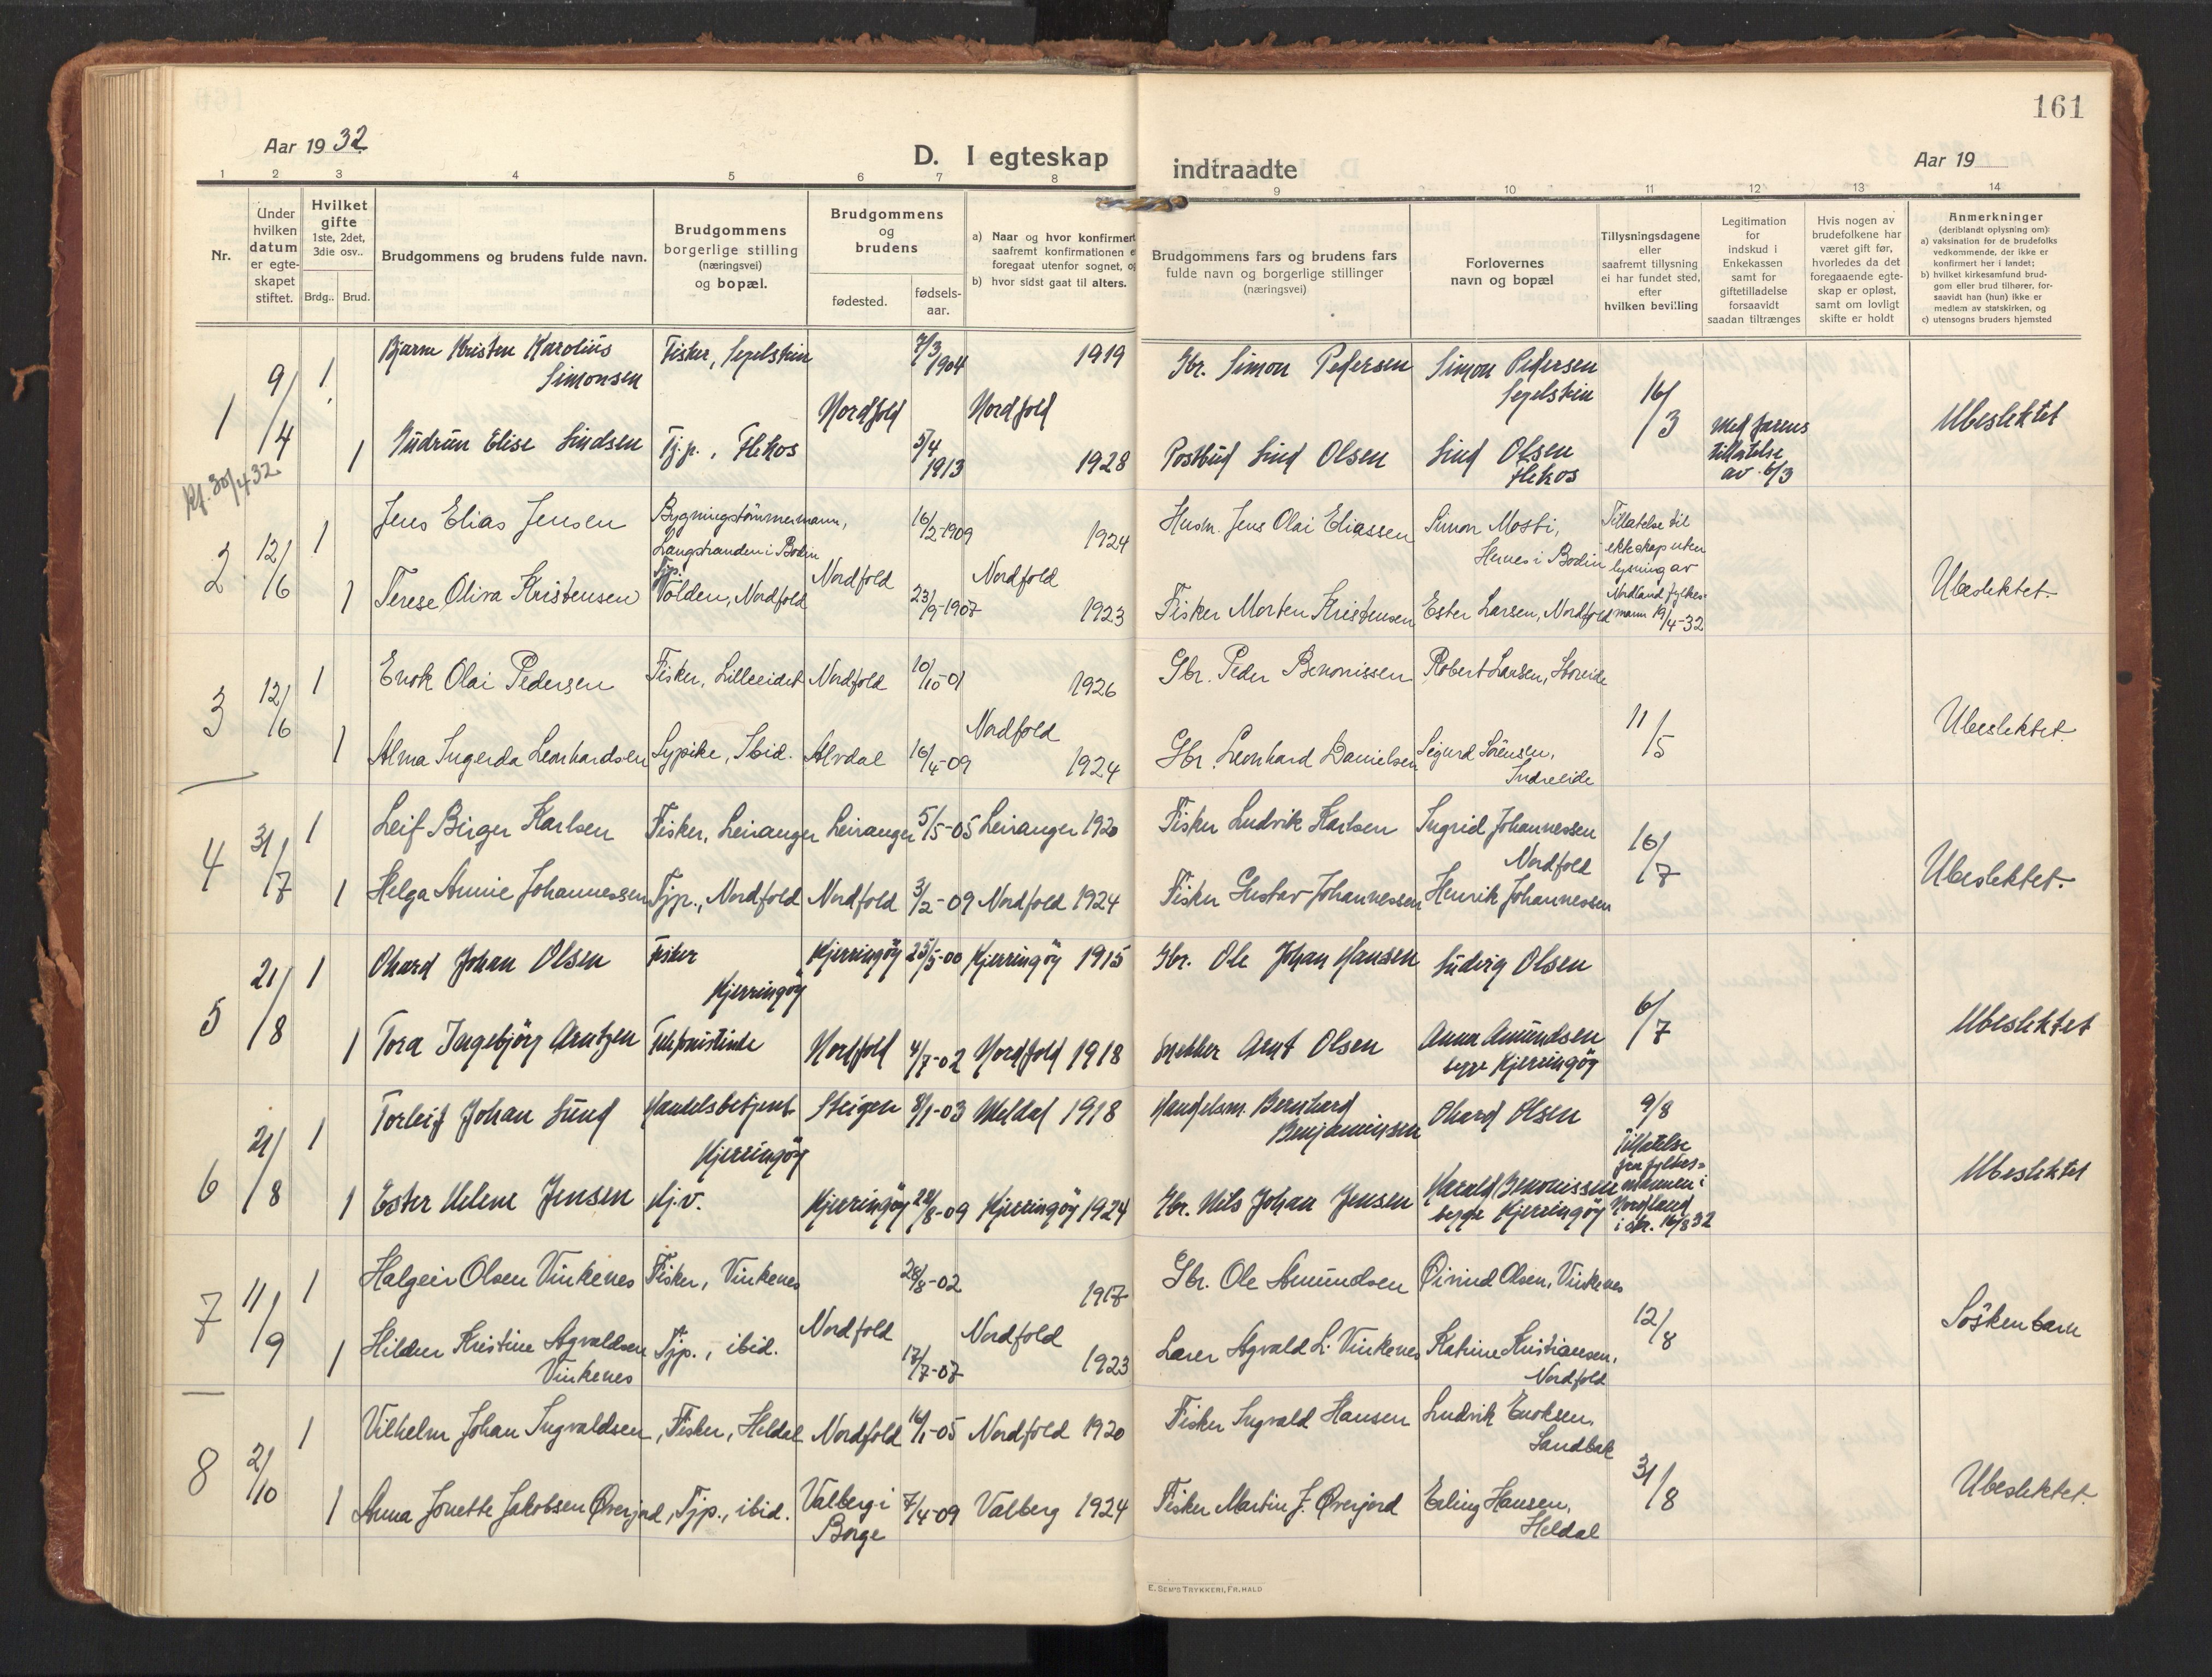 161
Aar 1932
D. I egteskap
indtraadte
Aar 19
1 2 3 4 5 6 7 8 9 10 11 12 13 14
Nr.
Under hvilken datum er egteskapet stiftet.
Hvilket gifte
1ste, 2det, 3die osv..
Brdg.. Brud.
Brudgommens og brudens fulde navn.
Brudgommens
borgerlige stilling
(næringsvei)
og bopæl.
Brudgommens
og
brudens
fødested.
fødsels-
aar.
a) Naar og hvor konfirmert
saafremt konfirmationen e
foregaat utenfor sognet, og
b) hvor sidst gaat til alters.
Brudgommens fars og brudens fars
fulde navn og borgerlige stillinger
(næringsvei)
Forlovernes
navn og bopæl
Tillysningsdagene
eller
saafremt tillysning
ei har fundet sted,
efter
hvilken bevilling
Legitimation
for
indskud i
Enkekassen
samt for
giftetilladelse
forsaavidt
saadan tiltrænges
Hvis nogen av
brudefolkene har
været gift før,
hvorledes da det
foregaaende egte-
skap er opløst,
samt om lovligt
skifte er holdt
Anmerkninger
(deriblandt oplysning om):
a) vaksination for de brudefolks
vedkommende, der ikke er
konfirmert her i landet;
b) hvilket kirkesamfund brud-
gom eller brud tilhører, for-
saavidt han (hun) ikke er
medlem av statskirken, og
c) utensogns bruders hjemsted
1 9/4 1 Bjarne Kristen Karolius Simonsen Fisker, Segelstein 7/3 1904 1919 Gbr. Simon Pedersen Simon Pedersen Segelstein
Nordfold Nordfold 16/3 Ubeslektet
1 Gudrun Elise Lindsen Tj.p., Flekos 5/4 1913 1928 Postbud Lind Olsen Lind Olsen Flekos
med farens
tillatelse
av 6/3
Kf. 30/4 32
2 12/6 1 Jens Elias Jensen Bygningstömmermann, Langstranden i Bodin 16/2-1909 1924 Husm. Jens Olai Eliassen Simon Mosti, Hernes i Bodin
Tillatelse til
ekteskap uten
lysning av
Nordland fylkes-
mann 19/4-32
Nordfold Nordfold Ubeslektet.
1 Terese Oliva Kristensen Tjp. Volden, Nordfold 23/9-1907 1923 Fisker Morten Kristensen Ester Larsen, Nordfold
3 12/6 1 Enok Olai Pedersen Fisker, Lilleeidet Nordfold 10/10-01 1926 Gbr. Peder Benonissen Robert Larsen, Storeide
Nordfold 11/5 Ubeslektet.
1 Alma Ingerda Leonhardsen Sypike, Ibid. Alvdal 16/4-09 1924 Gbr. Leonhard Danielsen Sigurd Sörensen, Indreeide
4 31/7 1 Leif Birger Karlsen Fisker, Leiranger Leiranger 5/5-05 Leiranger 1920 Fisker Ludvik Karlsen Ingrid Johannessen Nordfold 16/7 Ubeslektet.
1 Helga Annie Johannessen Tjp., Nordfold Nordfold 3/2-09 Nordfold 1924 Fisker Gustav Johannessen Henrik Johannessen
5 21/8 1 Ohard Johan Olsen Fisker Kjerringöy Kjerringöy 23/5-00 Kjerringöy 1915 Gbr. Ole Johan Hansen Ludvig Olsen 6/7 Ubeslektet
1 Tora Ingebjörg Arntzen Telefonistinde Nordfold 4/7-02 Nordfold 1918 Snekker Arnt Olsen Anna Amundsen
begge Kjerringöy
6 21/8 1 Torleif Johan Lund Handelsbetjent Kjerringöy Steigen 8/1-03 Meldal 1918 Handelsm. Bernhard Benjaminsen Ohard Olsen
9/8
Tillatelse
fra fylkes=
mannen i
Nordland
i skr. 16/8 32
Ubeslektet
1 Ester Helene Jensen Hj.v. Kjerringöy 28/8-09 Kjerringöy 1924 Gbr. Nils Johan Jensen Harald Benonissen
begge Kjerringöy
7 11/9 1 Halgeir Olsen Vinkenes Fisker, Vinkenes 28/8-02 1917 Gbr. Ole Amundsen Øivind Olsen, Vinkenes
Nordfold Nordfold 12/8 Söskenbarn
1 Hildur Kristine Agvaldsen Vinkenes Tjp., ibid. 17/7-07 1923 Lærer Agvald L. Vinkenes Katrine Kristiansen, Nordfold
8 2/10 1 Vilhelm Johan Ingvaldsen, Fisker, Heldal Nordfold 16/1-05 Nordfold 1920 Fisker Ingvald Hansen Ludvik Enoksen, Sandbak
31/8 Ubeslektet.
1 Anna Jonette Jakobsen Øverjord, Tjp., ibid. Valberg i Borge 7/4-09 Valberg 1924 Fisker Martin J. Øverjord Erling Hansen, Heldal
E. SEM'S TRYKKERI, FR.HALD